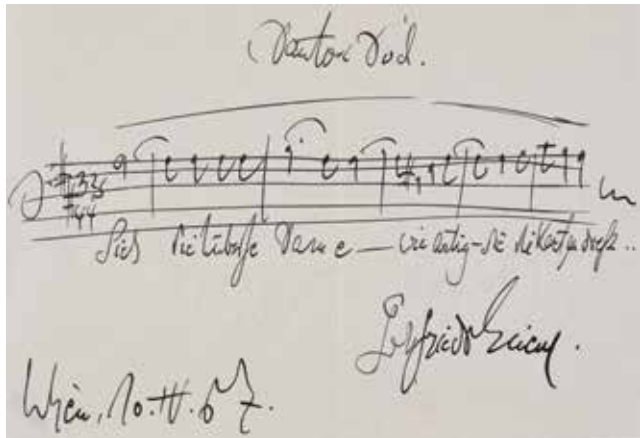 Dantons Tod.
Sieh die hübsche Dame — wie artig sie die Karten dreht ..
Gottfried Einem.
Wien, 10.IV.67.